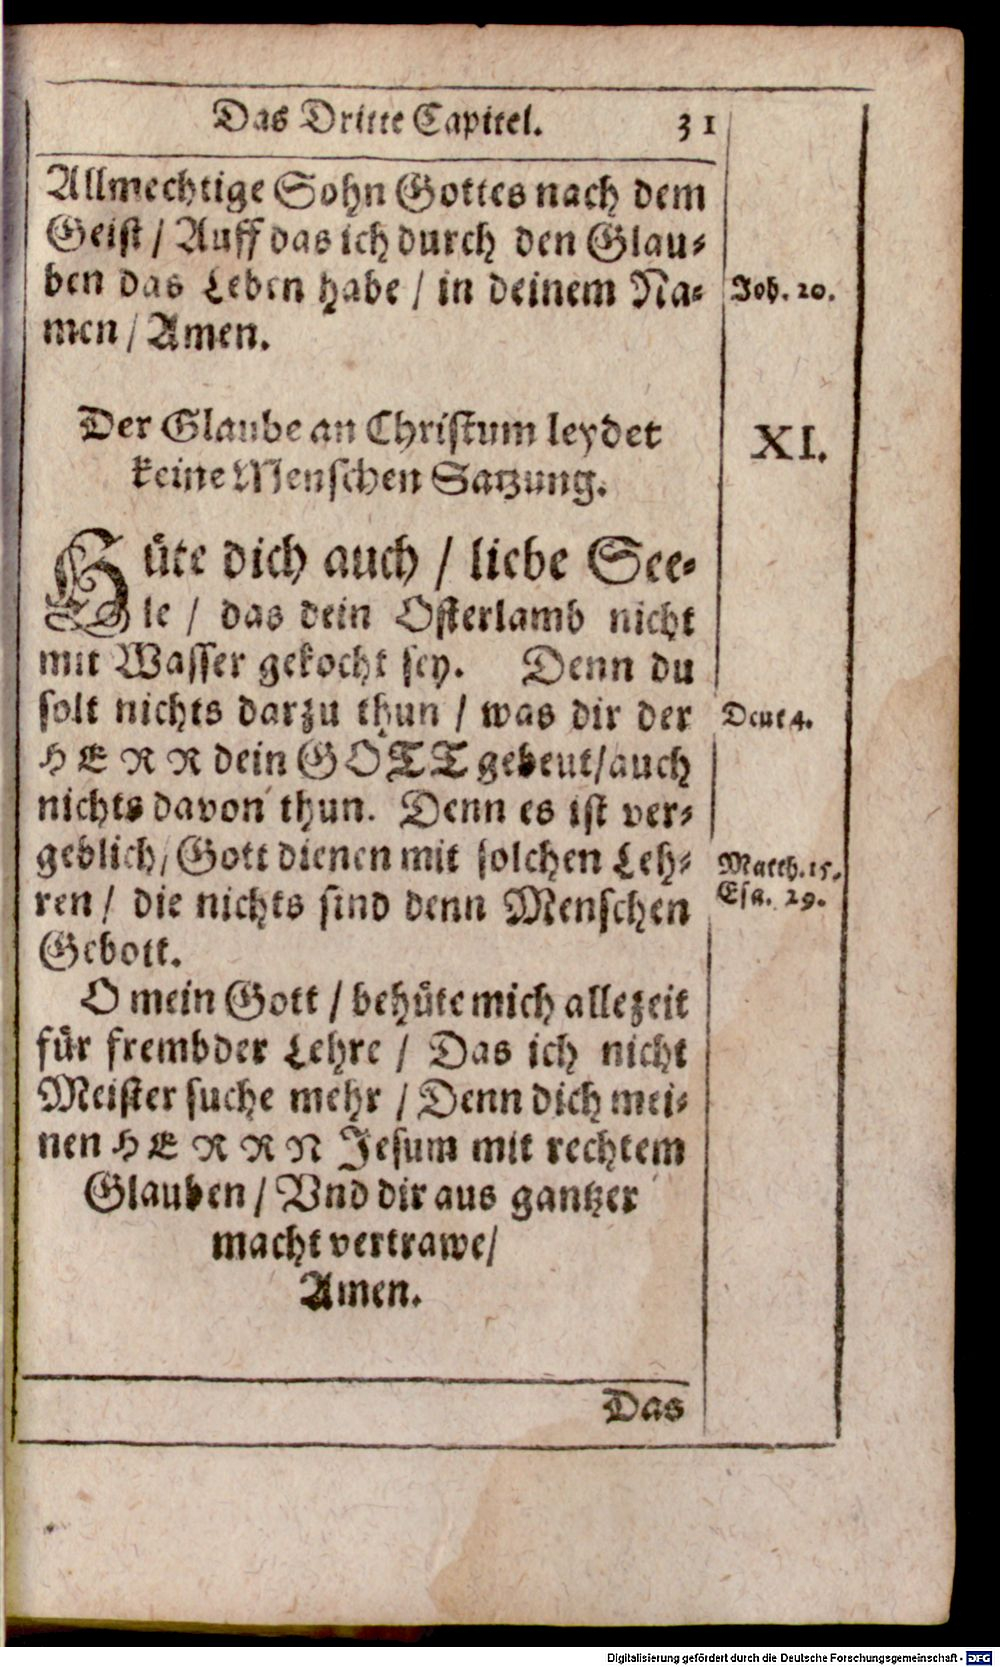 Das Dritte Capitel. 31
Allmechtige Sohn Gottes nach dem
Geist / Auff das ich durch den Glau-
ben das Leben habe / in deinem Na-
Joh. 20.
men / Amen.
Der Glaube an Christum leydet
keine Menschen Satzung.
XI.
Hüte dich auch / liebe See-
le / das dein Osterlamb nicht
mit Wasser gekocht sey. Denn du
solt nichts darzu thun / was dir der
Deut 4.
HERR dein GOTT gebeut/auch
nichts davon thun. Denn es ist ver-
geblich/Gott dienen mit solchen Leh-
Matth. 15.
ren / die nichts sind denn Menschen
Esa. 29.
Gebott.
O mein Gott / behüte mich allezeit
für frembder Lehre / Das ich nicht
Meister suche mehr / Denn dich mei-
nen HERRN Jesum mit rechtem
Glauben / Vnd dir aus gantzer
macht vertrawe/
Amen.
Das
Digitalisierung gefördert durch die Deutsche Forschungsgemeinschaft - DFG